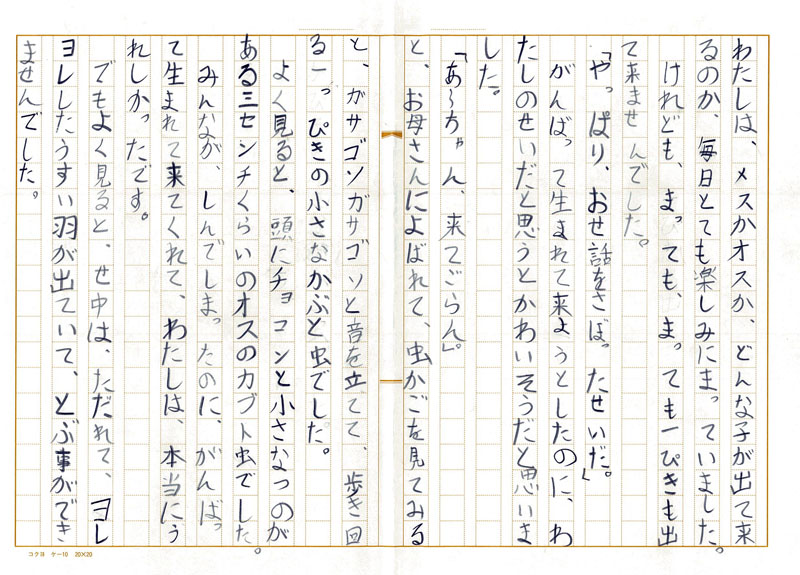 わたしは、メスかオスか、どんな子が出て来
るのか、毎日とても楽しみにまっていました。
けれども、まっても、まっても一ぴきも出
て来ませんでした。
「やっぱり、おせ話をさぼったせいだ。」
がんばって生まれて来ようとしたのに、わ
たしのせいだと思うとかわいそうだと思いま
した。
「あ〜ちゃん、来てごらん。」
と、お母さんによばれて、虫かごを見てみる
と、ガサゴソガサゴソと音を立てて、歩き回
る一っぴきの小さなかぶと虫でした。
よく見ると、頭にチョコンと小さなつのが
ある三センチくらいのオスのカブト虫でした。
みんなが、しんでしまったのに、がんばっ
て生まれて来てくれて、わたしは、本当にう
れしかったです。
でもよく見ると、せ中は、ただれて、ヨレ
ヨレしたうすい羽が出ていて、とぶ事ができ
ませんでした。
コクヨ ケー10 20×20